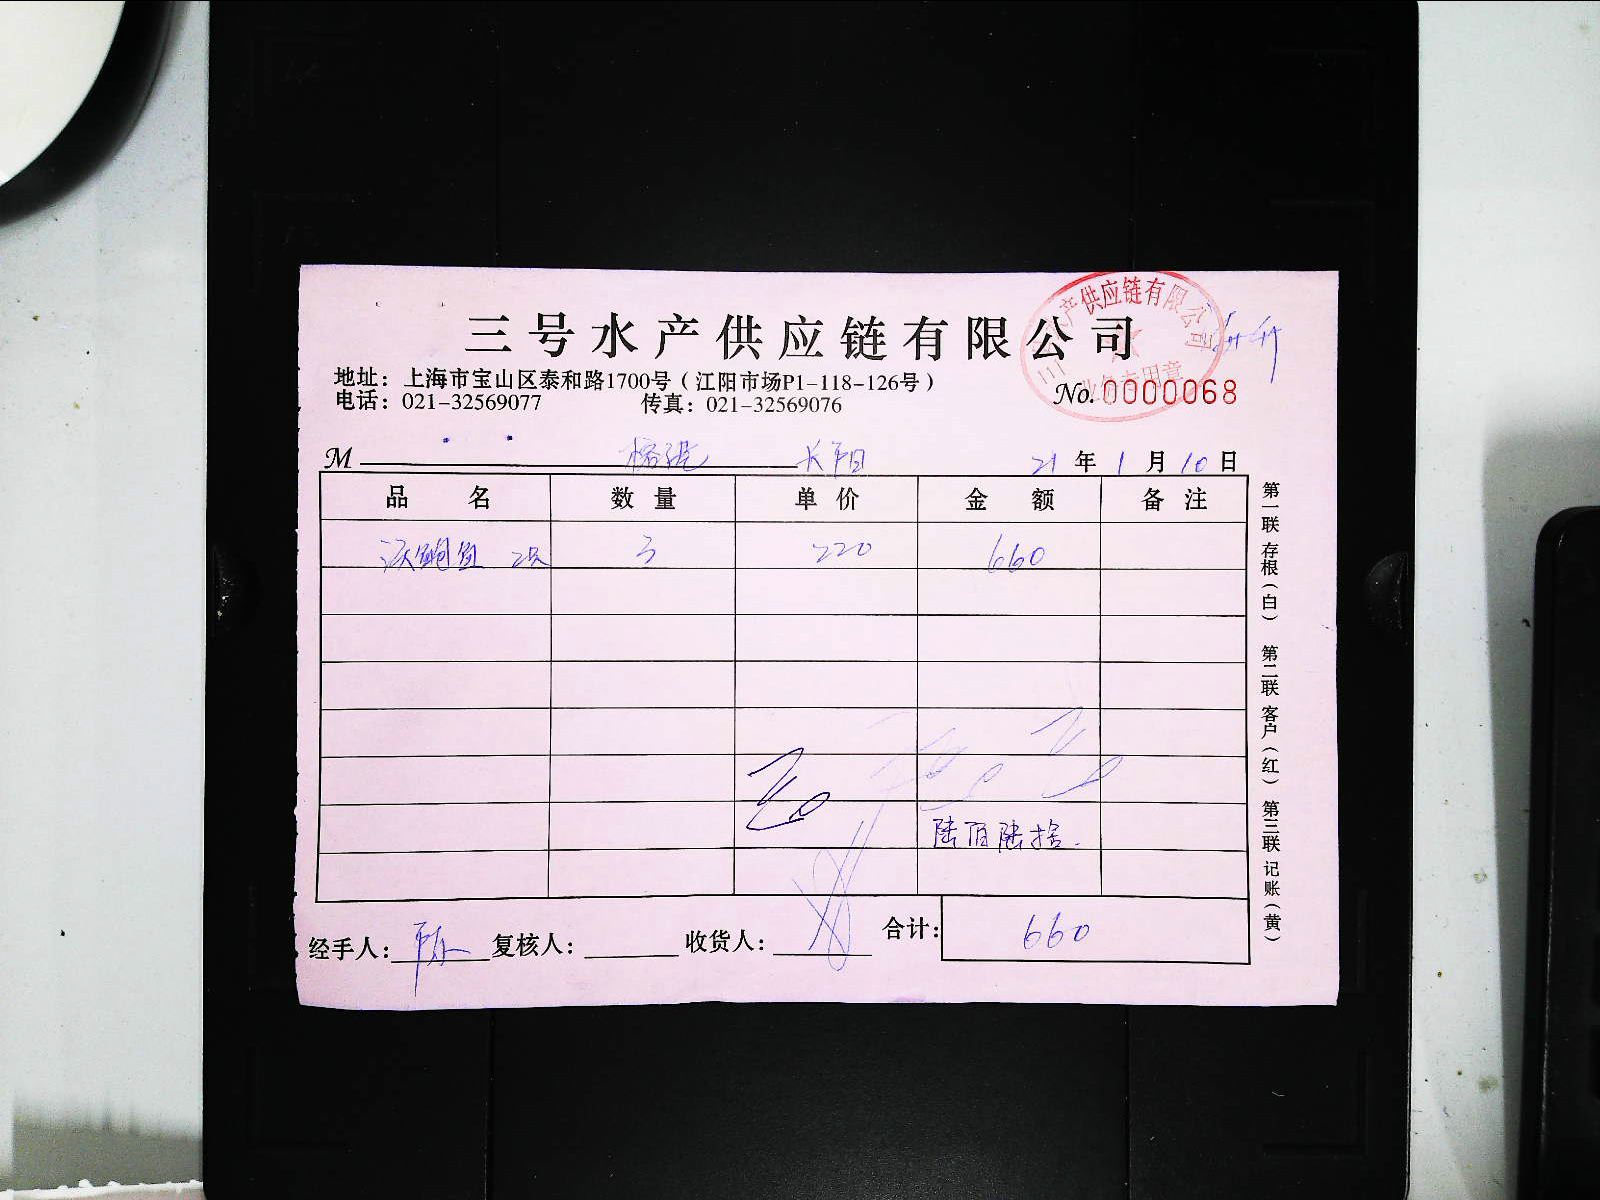 三号水产供应链有限公司
产供应链有限公司
地址：上海市宝山区泰和路1700号（江阳市场P1-118-126号）
电话：021-32569077 传真：021-32569076
No. 0000068
M 长阳 21年1月10日
品名 数量 单价 金额 备注
鲍鱼 3 220 660
陆佰陆拾.
经手人： 复核人： 收货人： 合计：660
第一联 存根（白） 第二联 客户（红） 第三联 记账（黄）